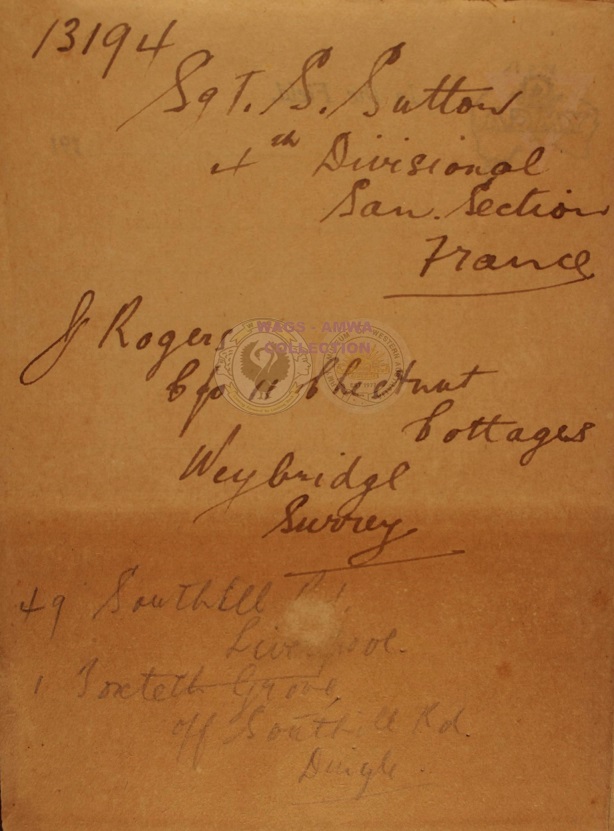 13194
Sgt. S. Sutton
4th Divisional
San. Section
France
J Rogers
WAGS - AMWA
COLLECTION
c/o 11 Chestnut
Cottages
Weybridge
Surrey
49 Southill Rd.
Liverpool.
1 Toxteth Grove
off Southill Rd
Dingle.